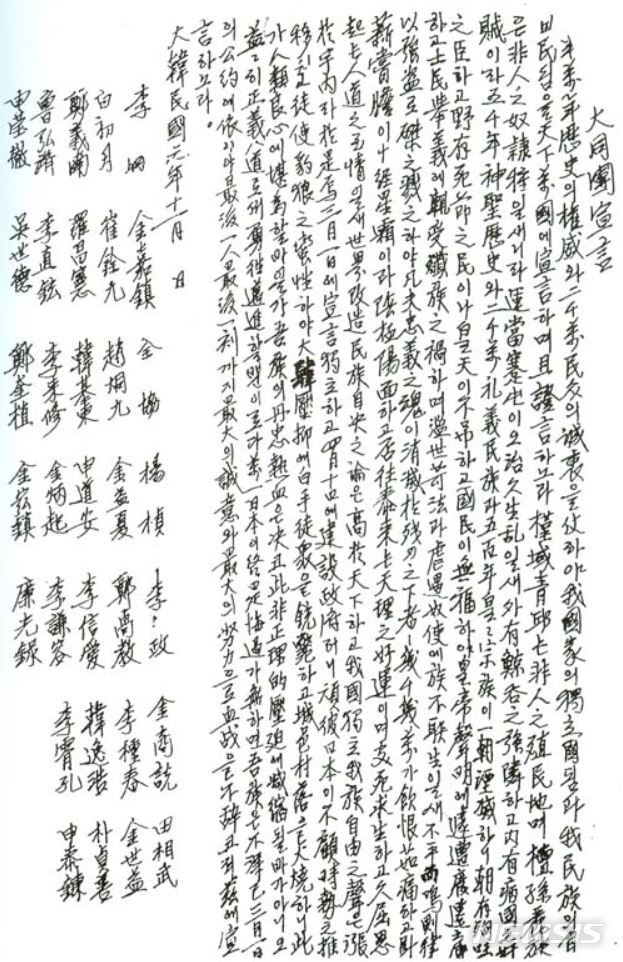 大同團宣言
半萬年歷史의權威와二千萬民衆의誠衷을仗하야我國家의獨立國됨과我民族의自
由民됨을天下萬國에宣言하며且證言하노라槿域靑邱는非人之殖民地며檀孫麗族
은非人之奴隷種일새니라運當蹇屯이오治久生亂일새外有鯨呑之强隣하고內有病國奸
賊이라五千年神聖歷史와二千萬礼義民族과五百年皇皇宗族이一朝湮滅하니朝有殉國
之臣하고野有死節之民이나皇天이不弔하고國民이無福하야皇帝聲明에遽遭廢遷之辱
하고士民擧義에輒受殲族之禍하며濫世苛法과虐遇奴使에族不聊生일새不平而鳴則律
以强盜로磔之戮之하야凡夫忠義之魂이消滅於殘刃之下者ㅣ幾千幾萬가飮恨茹痛하고臥
薪嘗膽이十經星霜이라陰極陽回하고否往泰來는天理之好運이며處死求生하고久屈思
起는人道之至情일새世界改造民族自決之論은高於天下하고我國獨立我族自由之聲은漲
於宇內라於是焉三月一日에宣言獨立하고四月十日에建設政府러니頑彼日本이不顧時勢之推
移하고徒使豹狼之蠻性하야大肆壓抑에白手徒衆을銃斃하고城邑村落을火燒하니此
가人類良心에堪爲할바일가吾族의丹忠熱血은決코此非正理的壓迫에減縮될바가아니오
益益히正義人道로써勇往邁進할뿐이로다萬一日本이終是悔過가無하면吾族은不得已三月一日
의公約에依하야最後一人最後一刻까지最大의誠意와最大의努力으로血戰을不辭코저玆에宣
言하노라。
大韓民國元年十一月 日
李堈 金嘉鎭 全協 楊楨 李政 金商說 田相武
白初月 崔銓九 趙炯九 金益夏 鄭卨敎 李種春 金世益
鄭義南 羅昌憲 韓基東 申道安 李信愛 韓逸浩 朴貞善
魯弘濟 李直鉉 李來修 金炳起 李謙容 李雷孔 申泰鍊
申瑩徹 吳世德 鄭奎植 金宏鎭 廉光祿
NEWSIS